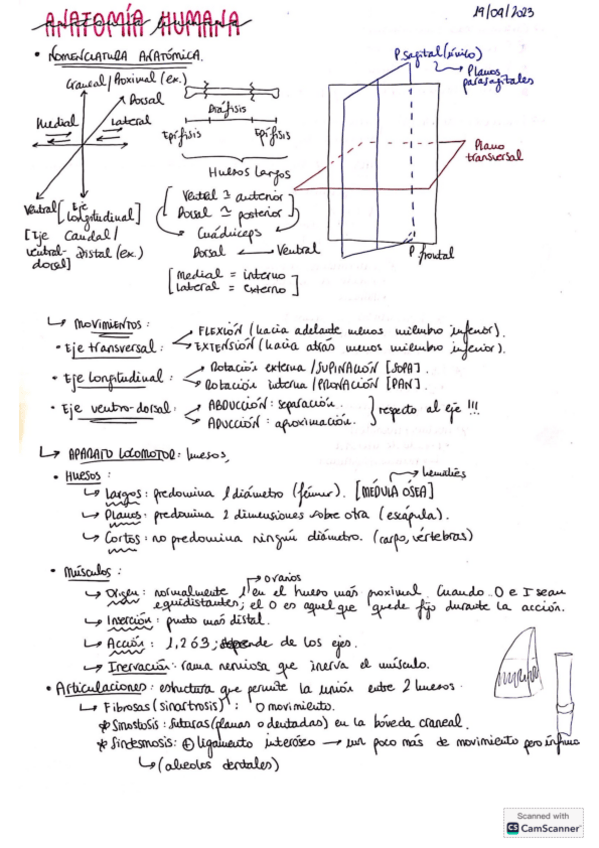 ANATOMÍA HUMANA
19/09/2023
• NOMENCLATURA ANATÓMICA.
Craneal/Proximal (ex.)
Dorsal
Medial
Lateral
Ventral
[Eje longitudinal]
[Eje ventral-dorsal]
Caudal/
distal (ex.)
Diáfisis
Epífisis
Epífisis
Huesos largos
Ventral ≃ anterior
Dorsal ≃ posterior
Cuádriceps
Dorsal ← Ventral
[medial = interno
lateral = externo]
P. sagital (único)
→ Planos parasagitales
Plano transversal
P. frontal
↳ MOVIMIENTOS:
• Eje transversal: FLEXIÓN (hacia adelante menos miembro inferior).
EXTENSIÓN (hacia atrás menos miembro inferior).
• Eje longitudinal: Rotación externa/SUPINACIÓN [SOPA].
Rotación interna/PRONACIÓN [PAN].
• Eje ventro-dorsal: ABDUCCIÓN: separación.
ADUCCIÓN: aproximación.
} respecto al eje !!!
↳ APARATO LOCOMOTOR: huesos,
• HUESOS:
→ hematíes
↳ Largos: predomina 1 diámetro (fémur). [MÉDULA ÓSEA]
↳ Planos: predomina 2 dimensiones sobre otra (escápula).
↳ Cortos: no predomina ningún diámetro. (carpo, vértebras)
• Músculos:
→ o varios
↳ Origen: normalmente 1 en el hueso más proximal. Cuando O e I sean
equidistantes; el O es aquel que quede fijo durante la acción.
↳ Inserción: punto más distal.
↳ Acción: 1, 2 ó 3; depende de los ejes.
↳ Inervación: rama nerviosa que inerva el músculo.
• Articulaciones: estructura que permite la unión entre 2 huesos.
↳ Fibrosas (sinartrosis): 0 movimiento.
* Sinostosis: suturas (planas o dentadas) en la bóveda craneal.
* Sindesmosis: ⊕ ligamento interóseo → un poco más de movimiento pero ínfimo
↳ (alveolos dentales)
Scanned with
CS CamScanner